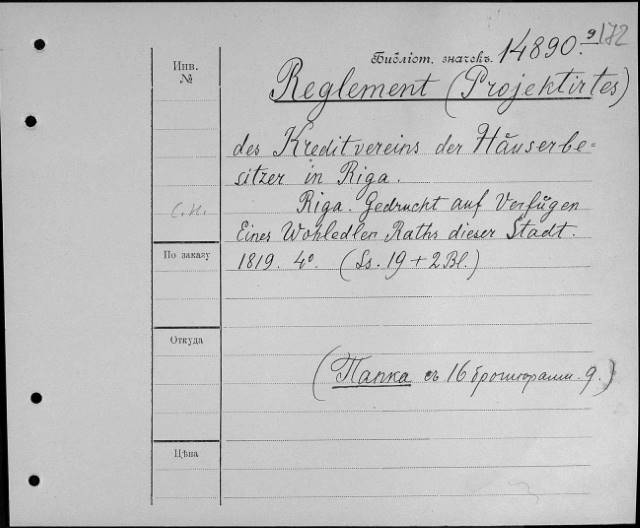 Библіот. значекъ. 14890. 9/172
Инв. №
Reglement (Projektirtes)
des Kreditvereins der Häuserbe=
sitzer in Riga.
С.И.
Riga. Gedruckt auf Verfügen
Eines Wohledlen Raths dieser Stadt.
По заказу
1819. 4°. (Ss. 19 + 2 Bl.)
Откуда
(Папка съ 16 брошюрами. 9.)
Цѣна